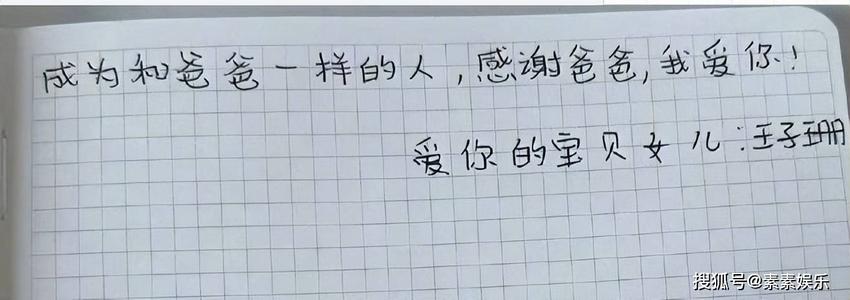 成为和爸爸一样的人，感谢爸爸，我爱你！
爱你的宝贝女儿：王子珊
搜狐号@素素娱乐